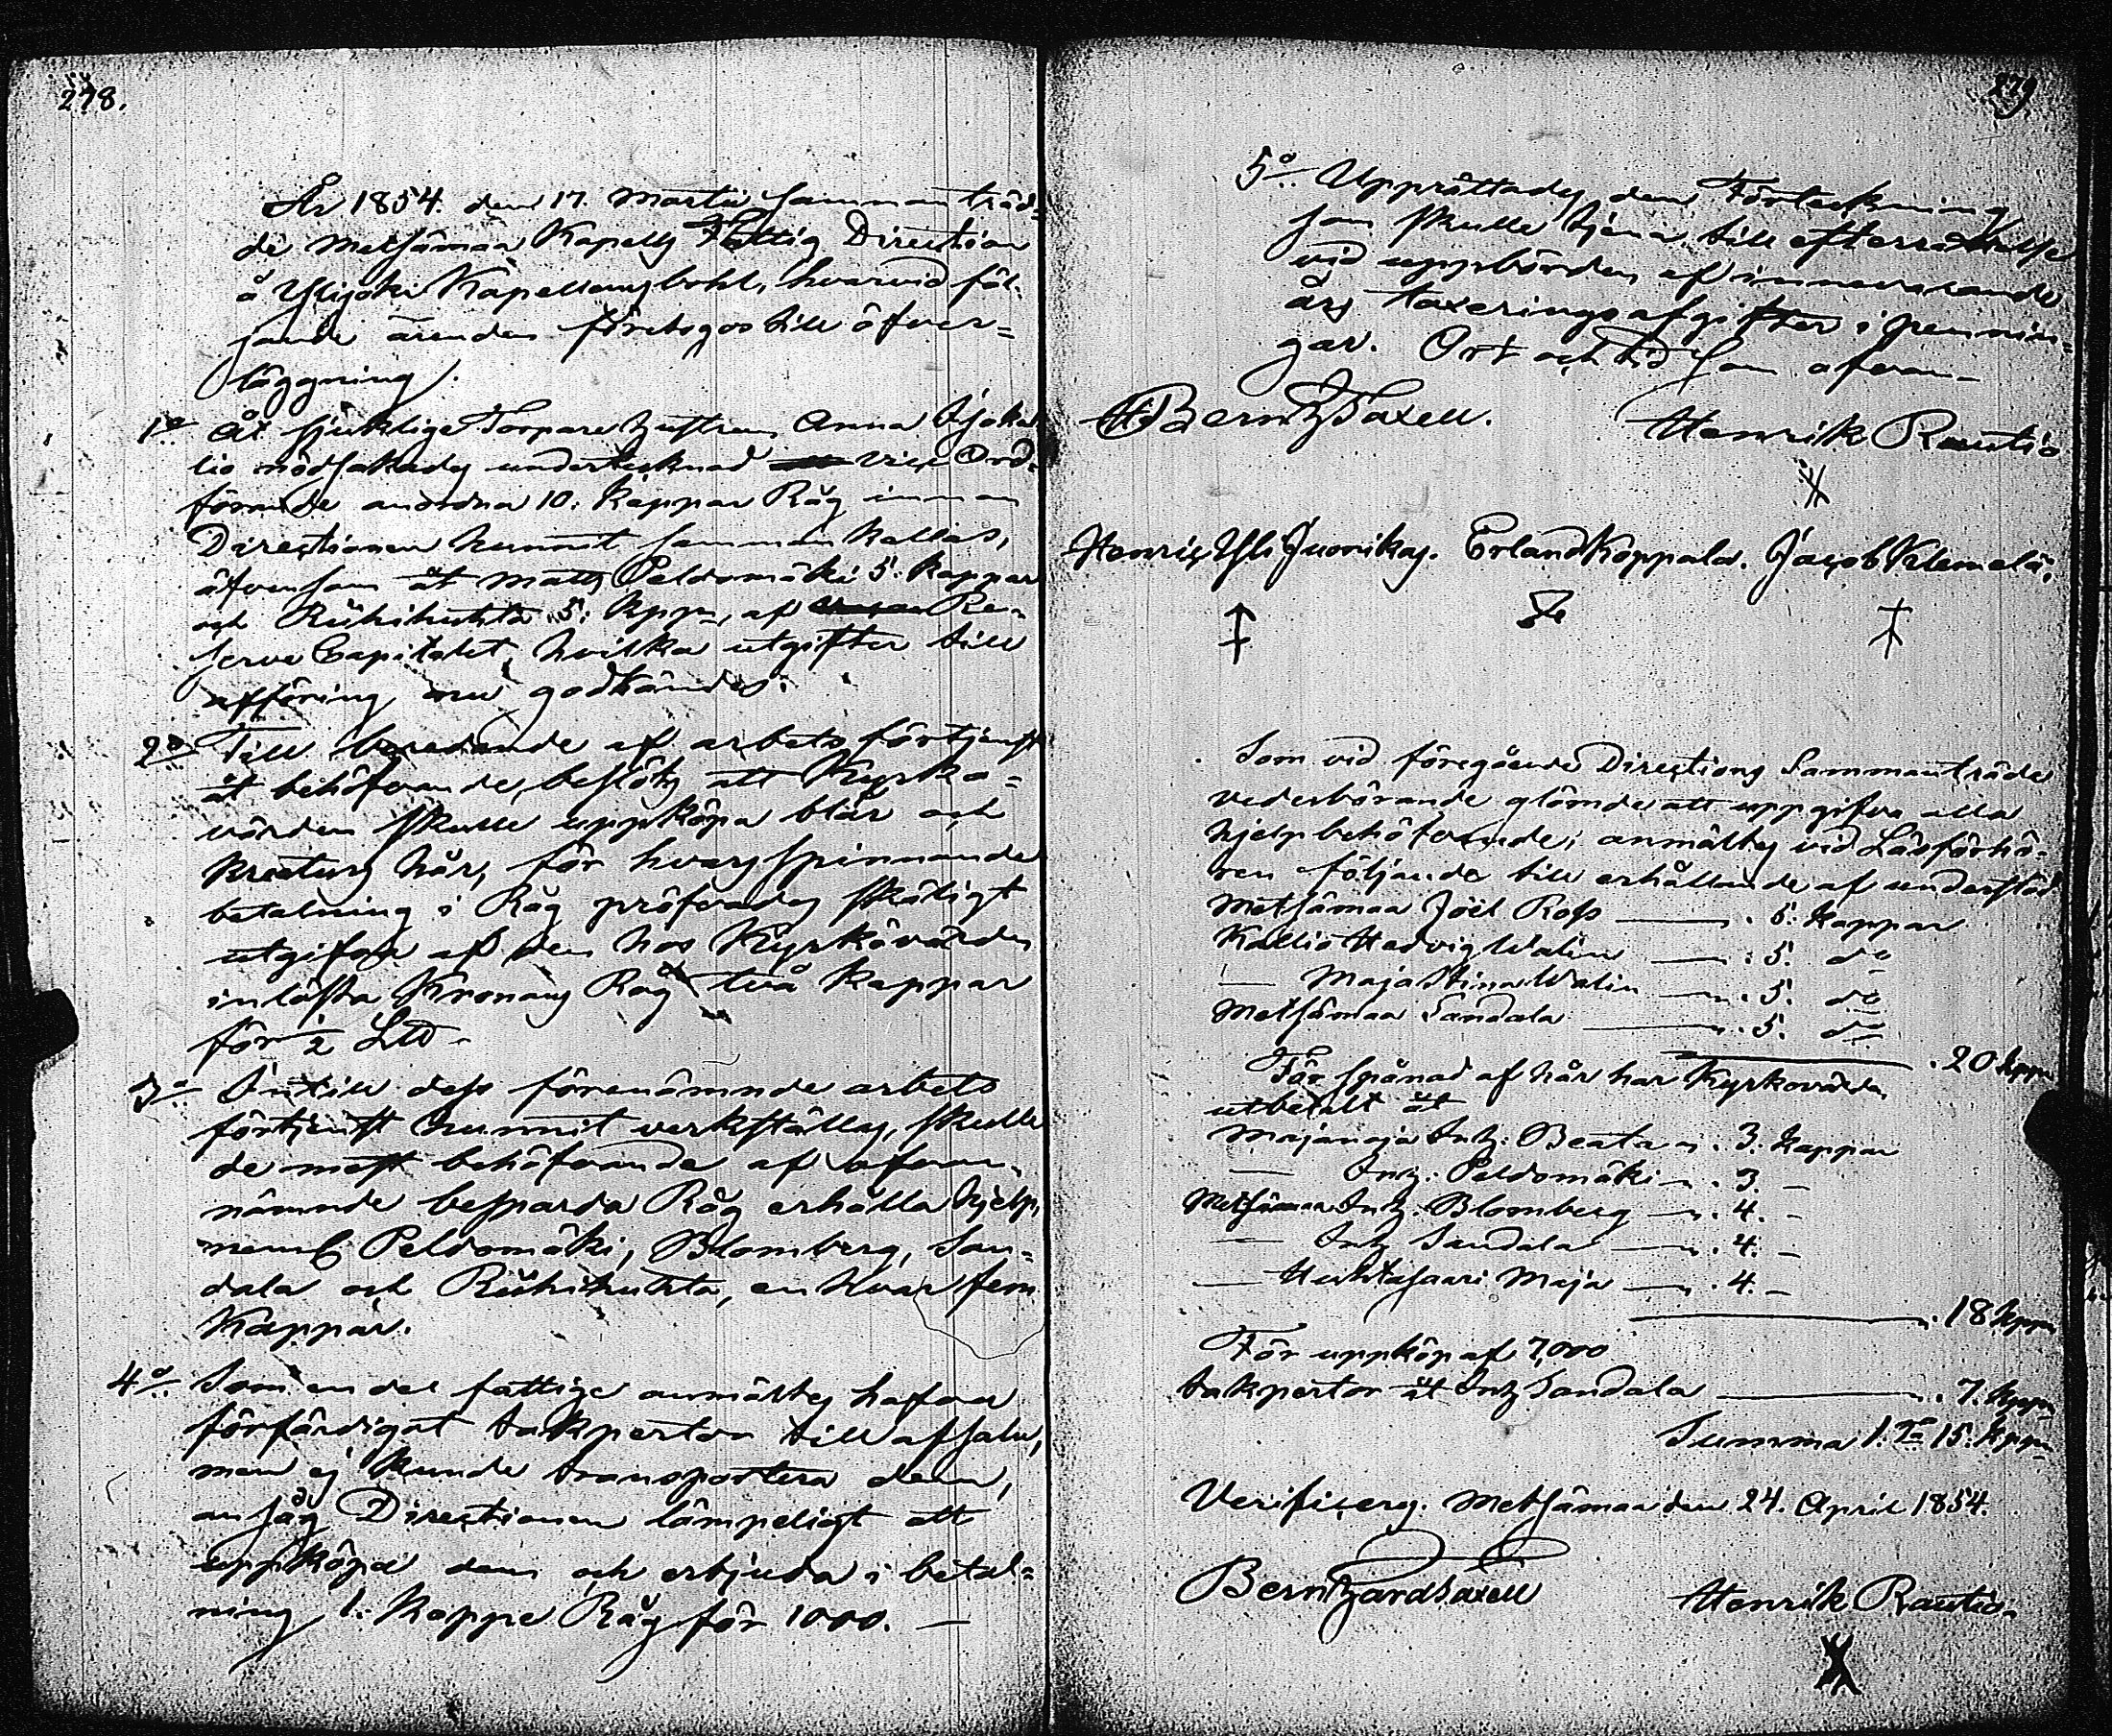 278.
År 1854. den 17. Martii samman träd=
de Metsämaa Kapells Fattig Direction
å Ylijoki Kapellansbohl, hvarvid föl=
jande ärenden företogos till öfver=
läggning.
1o Åt sjuklige Torpare hustrun Anna
lio nödsakades undertecknad vice Ord=
förande anordna 10. kappar Råg innan
Directionen hunnit samman kallas,
äfvensom åt Matts Peldomäki 5. kappar
och Riihihuhta 5. kppr, af Re=
serve Capitalet, hvilka utgifter till
afföring nu godkändes.
2o Till beredande af arbets förtjenst
åt behöfvande, beslöts att Kyrko=
värden skulle uppköpa blår och
kreaturs hår, för hvars spinnande
betalning i Råg pröfvades skäligt
utgifva af den hos Kyrkovärden
inlösta Kronans Råg två kappar
för ½ L℔.
3o Intill dess förenämnde arbets
förtjenst hunnit verkställas, skulle
de mest behöfvande af ofvan=
nämnde besparda Råg erhålla hjelp,
neml. Peldomäki, Blomberg, San=
dala och Riihihuhta, en hvar fem
Kappar.
4o Som en del fattige anmältes hafva
förfärdigat takpertor till afsalu,
men ej kunde transportera dem,
ansåg Directionen lämpeligt att
uppköpa dem och erbjuda i betal=
ning 1. kappe Råg för 1000. —
279.
5o Upprättades den Förteckning
som skulle tjena till efterrättelse
vid uppbörden af innevarande
års taxeringsafgifter i pennin=
gar. Ort och tid som ofvan
Bernh Saxell. Henrik Rautio
Henric Yli Juonikas. Erland Koppala. Jacob Klemelä.
Som vid föregående Directions Sammanträde
vederbörande glömde att uppgifva alla
hjelpbehöfvande; anmältes vid Läsförhö=
ren följande till erhållande af understöd
Metsämaa Joël Ross — 5. kappar
Kallio Hedvig Walin — 5. do
— Maja Stina Walin — 5. do
Metsämaa Sandala — 5. do
20 kppr
För spånad af hår har Kyrkovärden
utbetalt åt
Majanoja Inh: Beata 3. kappar
— Inh: Peldomäki 3. —
Metsämaa Inh. Blomberg 4. —
— Inh Sandala 4. —
— Huhtasaari Maja 4. —
18 kppr
För uppköp af 7,000
takpertor åt Inh Sandala 7. kppr
Summa 1. Ta 15. kppr
Verificeras. Metsämaa den 24. April 1854.
Bernhard Saxell Henrik Rautio.